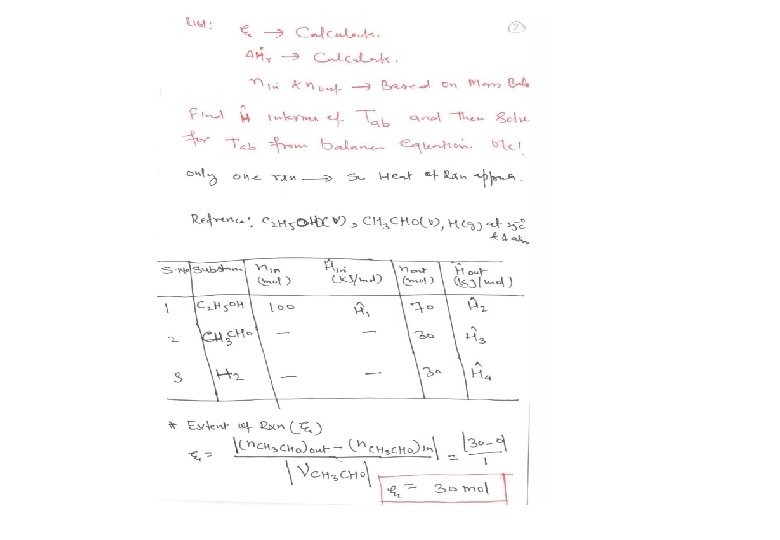 List: ξ → Calculate. (2)
ΔĤr → Calculate.
nin & nout → Based on Mass Bala
Find Ĥ interms of Tab and then Solve
for Tab from balance equation. b/c!
only one rxn → so Heat of Rxn
Refrence: C2H5OH(v), CH3CHO(v), H(g) at 25°C
& 1 atm
S.No Substan nin (mol) Ĥin (kJ/mol) nout (mol) Ĥout (kJ/mol)
1 C2H5OH 100 Ĥ1 70 Ĥ2
2 CH3CHO — — 30 Ĥ3
3 H2 — — 30 Ĥ4
* Extent of Rxn (ξ)
ξ = |(nCH3CHO)out - (nCH3CHO)in| / |νCH3CHO| = |30-0| / 1
ξ = 30 mol